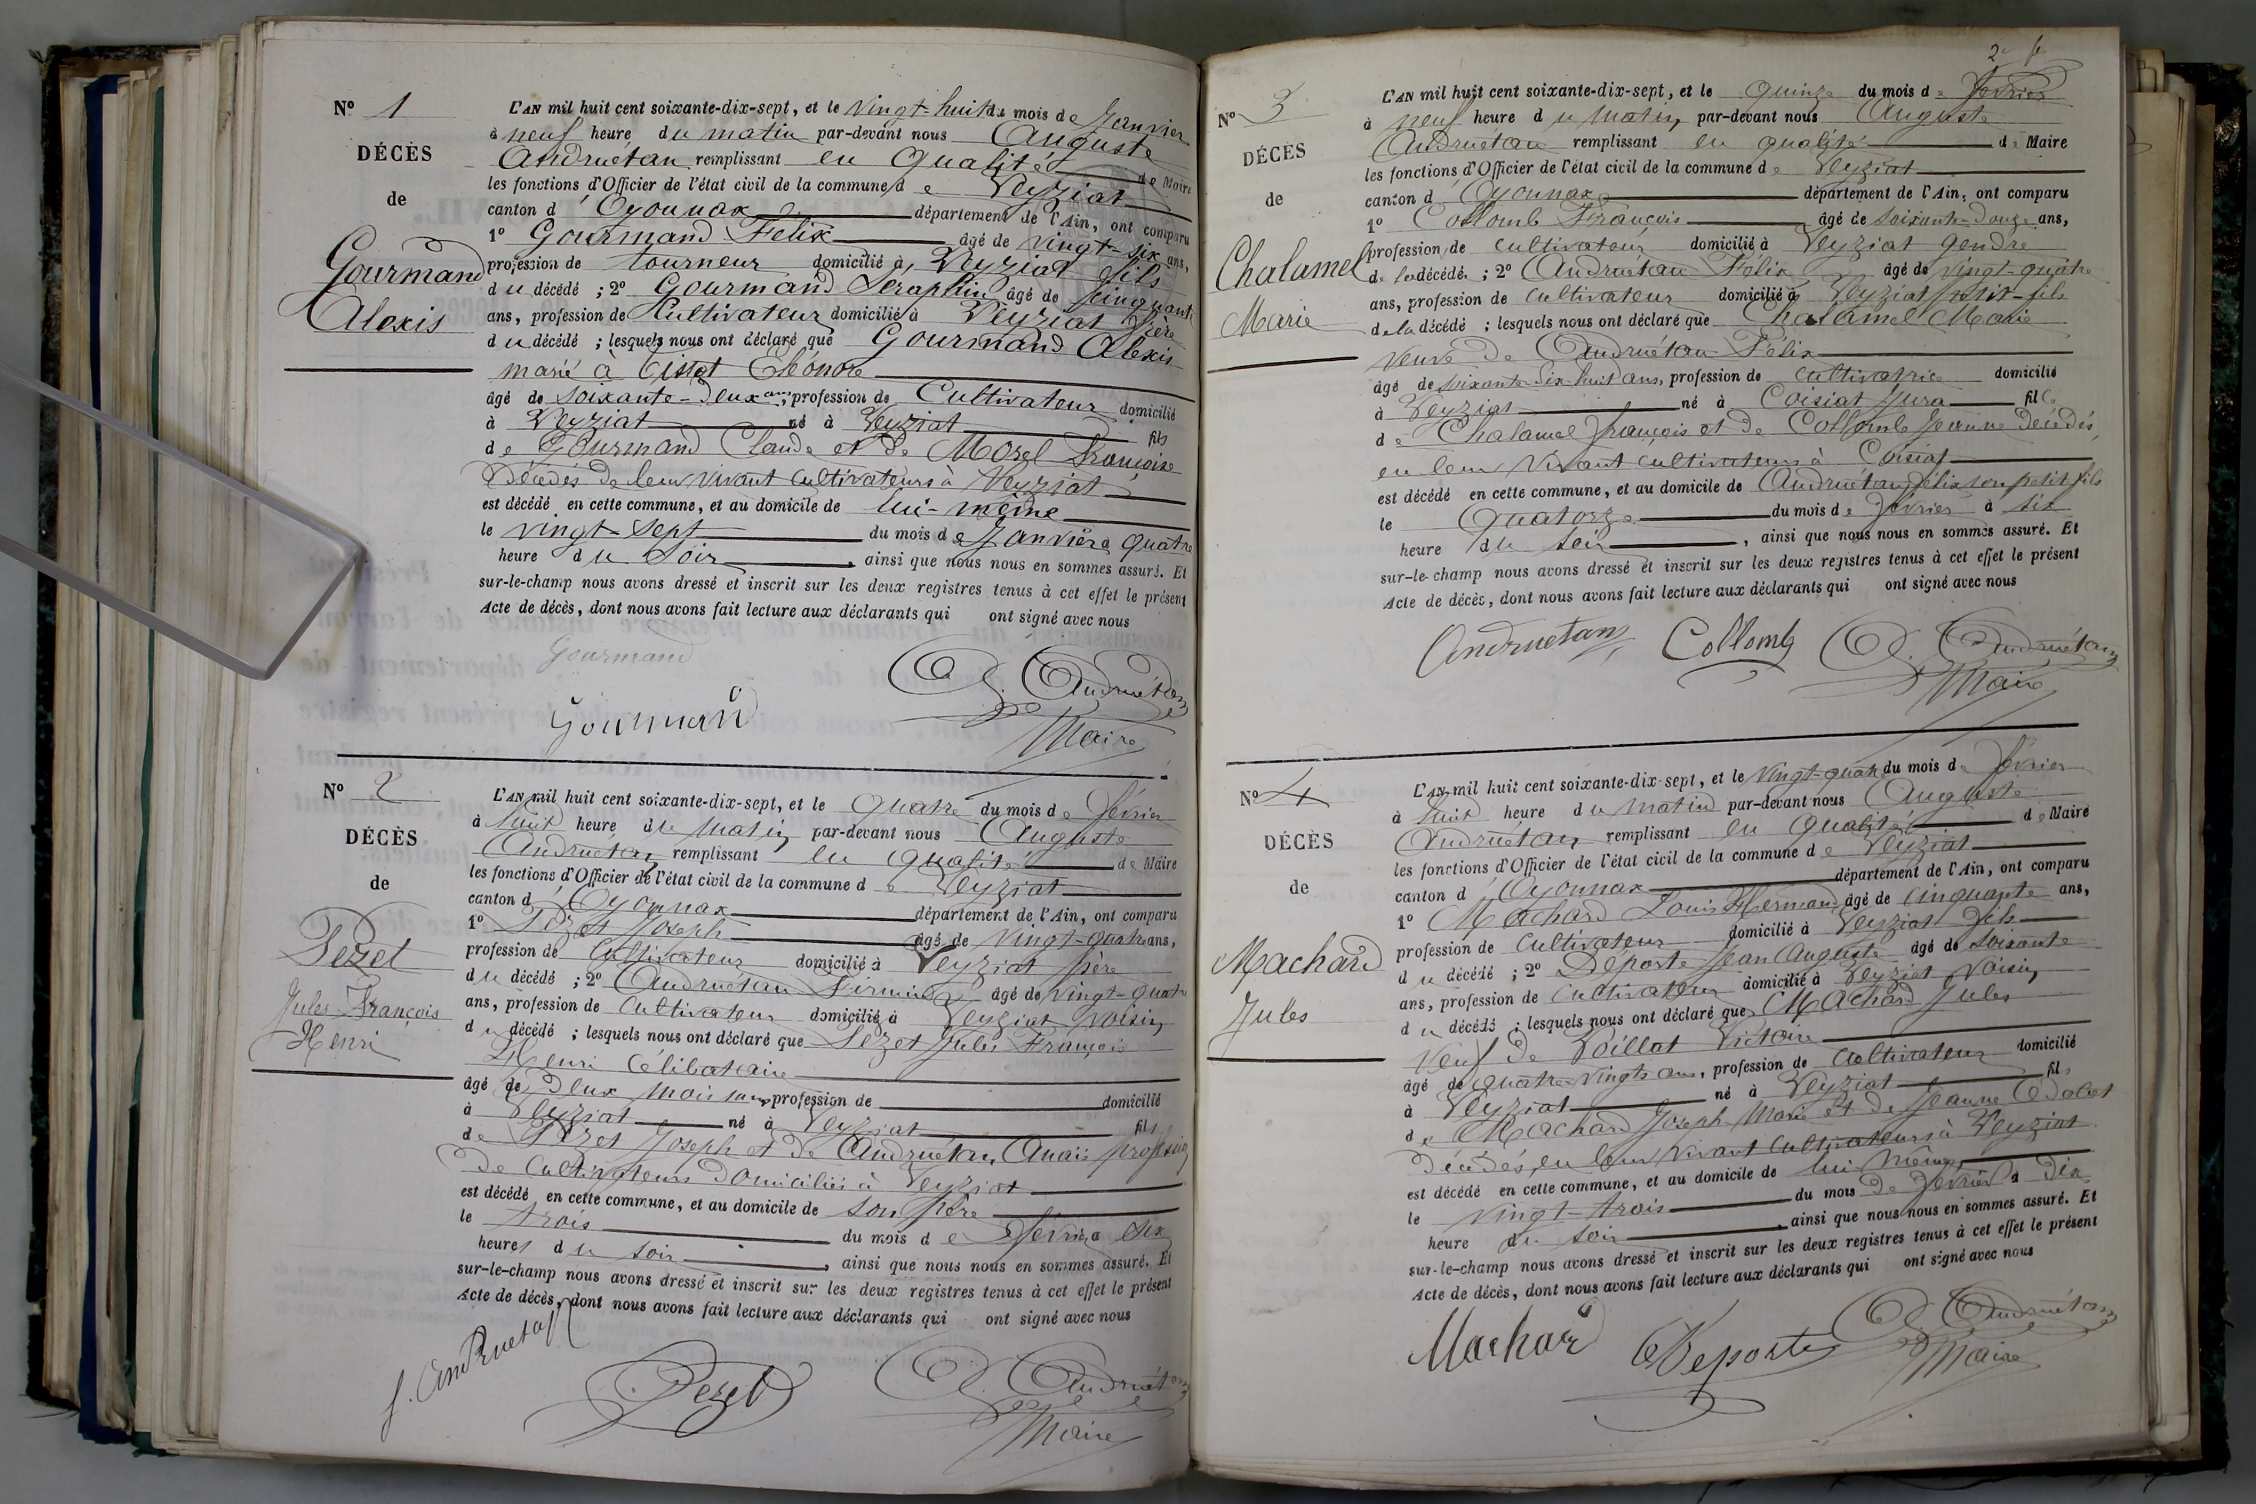 N° 1
DÉCÈS
de
Gourmand
Alexis
L'AN mil huit cent soixante-dix-sept, et le vingt-huit du mois de Janvier
à neuf heure du matin par-devant nous Auguste
Andruétan remplissant en qualité de Maire
les fonctions d'Officier de l'état civil de la commune de Veyziat
canton d'Oyonnax département de l'Ain, ont comparu
1° Gourmand Félix âgé de vingt-six ans,
profession de tourneur domicilié à Veyziat fils
du décédé ; 2° Gourmand Séraphin âgé de cinquante
ans, profession de Cultivateur domicilié à Veyziat frère
du décédé ; lesquels nous ont déclaré que Gourmand Alexis
marié à Eléonore
âgé de soixante-deux ans, profession de Cultivateur domicilié
à Veyziat né à Veyziat fils
de Gourmand Claude et de Morel Françoise
Décédés de leur vivant cultivateurs à Veyziat
est décédé en cette commune, et au domicile de lui-même
le vingt-sept du mois de Janvier à quatre
heure du soir, ainsi que nous nous en sommes assuré. Et
sur-le-champ nous avons dressé et inscrit sur les deux registres tenus à cet effet le présent
Acte de décès, dont nous avons fait lecture aux déclarants qui ont signé avec nous
Gourmand
Gourmand
A. Andruétan
Maire
N° 2
DÉCÈS
de
Pezet
Jules François
Henri
L'AN mil huit cent soixante-dix-sept, et le quatre du mois de février
à huit heure du matin par-devant nous Auguste
Andruétan remplissant en qualité de Maire
les fonctions d'Officier de l'état civil de la commune de Veyziat
canton d'Oyonnax département de l'Ain, ont comparu
1° Pezet Joseph âgé de vingt-quatre ans,
profession de Cultivateur domicilié à Veyziat père
du décédé ; 2° Andruétan Firmin âgé de vingt-quatre
ans, profession de Cultivateur domicilié à Veyziat voisin
du décédé ; lesquels nous ont déclaré que Pezet Jules François
Henri Célibataire
âgé de Deux mois sans profession de domicilié
à Veyziat né à Veyziat fils
de Pezet Joseph et de Andruétan Anaïs profession
de Cultivateurs domiciliés à Veyziat
est décédé en cette commune, et au domicile de son père
le trois du mois de février à six
heures du soir, ainsi que nous nous en sommes assuré. Et
sur-le-champ nous avons dressé et inscrit sur les deux registres tenus à cet effet le présent
Acte de décès, dont nous avons fait lecture aux déclarants qui ont signé avec nous
f. andruetan
Pezet
A. Andruétan
Maire
2e f
N° 3
DÉCÈS
de
Chalamel
Marie
L'AN mil huit cent soixante-dix-sept, et le quinze du mois de février
à neuf heure du matin, par-devant nous Auguste
Andruétan remplissant en qualité de Maire
les fonctions d'Officier de l'état civil de la commune de Veyziat
canton d'Oyonnax département de l'Ain, ont comparu
1° Collomb François âgé de soixante-douze ans,
profession de cultivateur domicilié à Veyziat gendre
de la décédé ; 2° Andruétan Félix âgé de vingt-quatre
ans, profession de cultivateur domicilié à Veyziat petit-fils
de la décédé ; lesquels nous ont déclaré que Chalamel Marie
veuve de Andruétan Félix
âgé de soixante-dix-huit ans, profession de cultivatrice domicilié
à Veyziat né à Coisiat Jura fille
de Chalamel François et de Collomb Jeanne décédés
en leur vivant cultivateurs à Coisiat
est décédé en cette commune, et au domicile de Andruétan Félix son petit fils
le Quatorze du mois de février à six
heure du soir, ainsi que nous nous en sommes assuré. Et
sur-le-champ nous avons dressé et inscrit sur les deux registres tenus à cet effet le présent
Acte de décès, dont nous avons fait lecture aux déclarants qui ont signé avec nous
Andruetan Collomb A. Andruétan
Maire
N° 4
DÉCÈS
de
Machard
Jules
L'AN mil huit cent soixante-dix-sept, et le vingt-quatre du mois de février
à huit heure du matin par-devant nous Auguste
Andruétan remplissant en qualité de Maire
les fonctions d'Officier de l'état civil de la commune de Veyziat
canton d'Oyonnax département de l'Ain, ont comparu
1° Machard Louis Hermand âgé de cinquante ans,
profession de cultivateur domicilié à Veyziat fils
du décédé ; 2° Déporte Jean Auguste âgé de soixante
ans, profession de cultivateur domicilié à Veyziat voisin
du décédé ; lesquels nous ont déclaré que Machard Jules
veuf de Voillat Victoire
âgé de quatre-vingts ans, profession de cultivateur domicilié
à Veyziat né à Veyziat fils
de Machard Joseph Marie et de Jeanne
décédés, en leur vivant cultivateurs à Veyziat
est décédé en cette commune, et au domicile de lui même
le vingt-trois du mois de février à dix
heure du soir, ainsi que nous nous en sommes assuré. Et
sur-le-champ nous avons dressé et inscrit sur les deux registres tenus à cet effet le présent
Acte de décès, dont nous avons fait lecture aux déclarants qui ont signé avec nous
Machard Déporte A. Andruétan
Maire